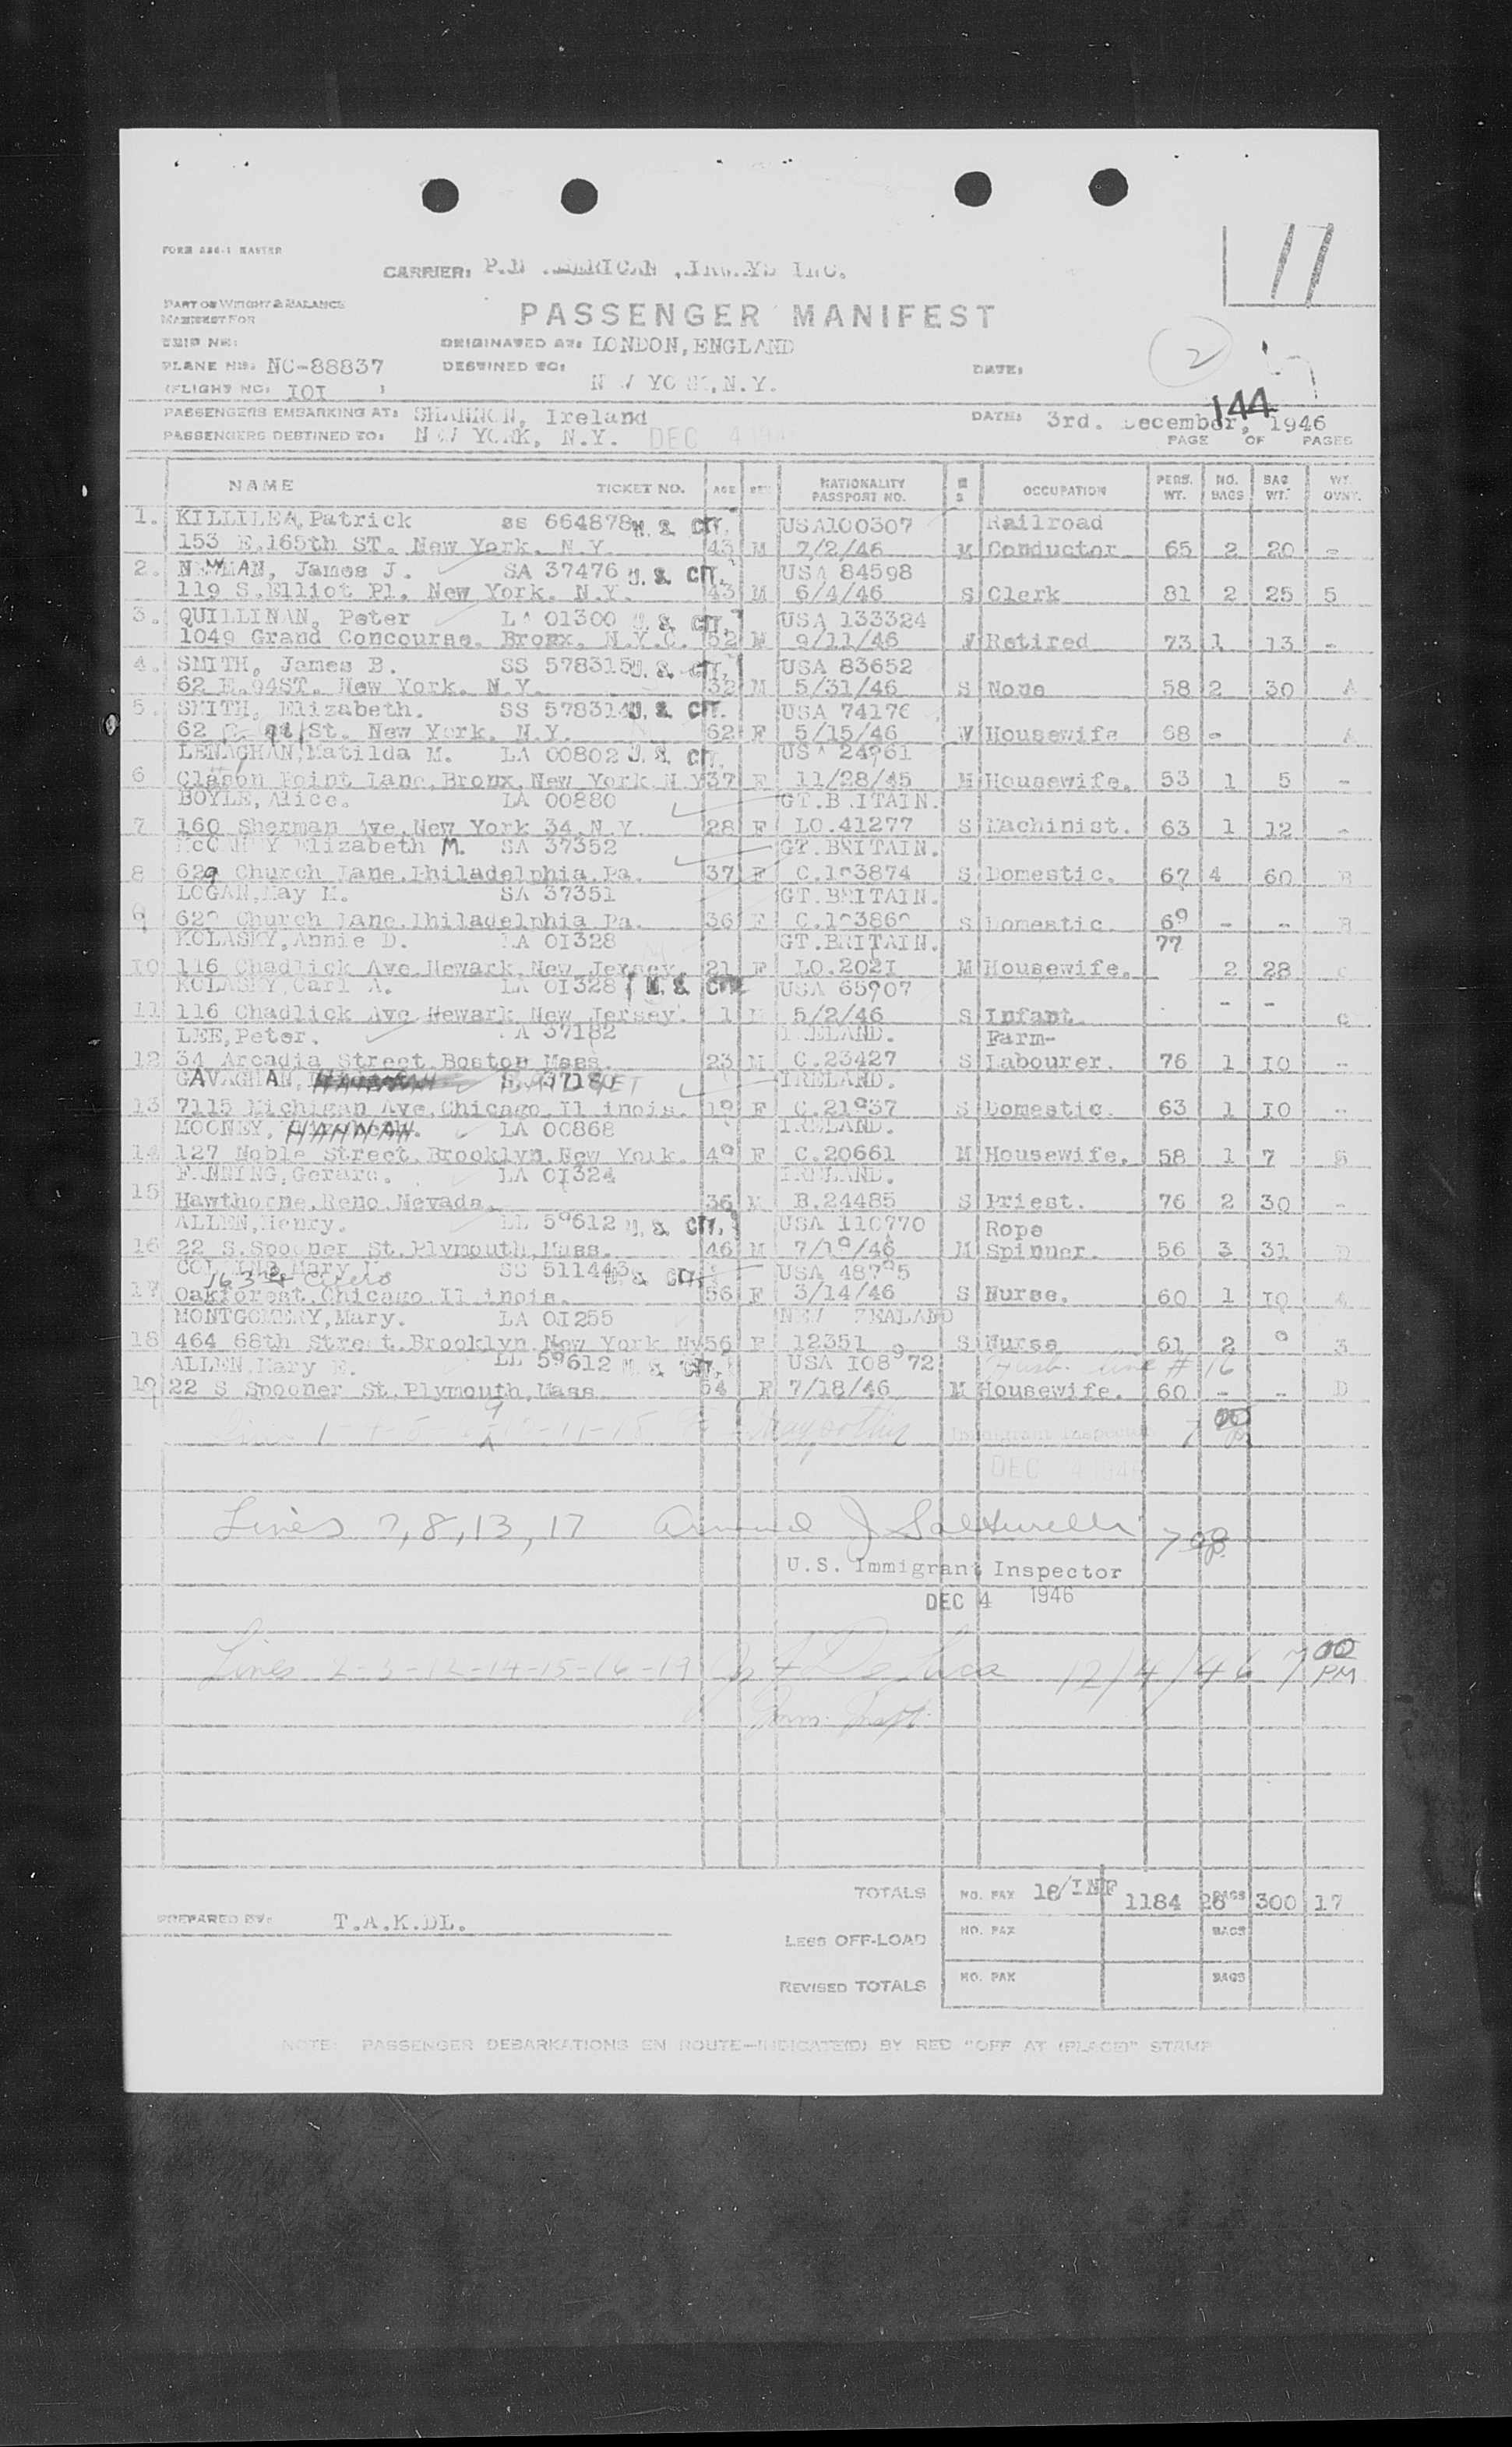 FORM 236-1 MASTER
11
CARRIER: P.N AMERICAN AIRWAYS INC.
PART OF WEIGHT & BALANCE
MANIFEST FOR
PASSENGER MANIFEST
SHIP NR:
ORIGINATED AT: LONDON, ENGLAND
2
PLANE NR. NC-88837
DESTINED TO: N W YORK, N.Y.
DATE:
(FLIGHT NO. IOI )
144
PASSENGERS EMBARKING AT: SHANNON, Ireland
DATE: 3rd. December, 1946
PASSENGERS DESTINED TO: NEW YORK, N.Y. DEC 4 194
PAGE OF PAGES
NAME TICKET NO. AGE SEX NATIONALITY PASSPORT NO. M S OCCUPATION PERS. WT. NO. BAGS BAG WT. WT. OVNT.
1. KILLILEA, Patrick ss 664878 U. S. CIT. USA100307 Railroad
153 E.165th ST. New York. N.Y. 43 M 7/2/46 M Conductor 65 2 20 -
2. NEWMAN, James J. SA 37476 U. S. CIT. USA 84598
119 S.Elliot Pl. New York. N.Y. 43 M 6/4/46 S Clerk 81 2 25 5
3. QUILLINAN, Peter LA 01300 U. S. CIT. USA 133324
1049 Grand Concourse. Bronx. N.Y.C. 52 M 9/11/46 W Retired 73 1 13 -
4. SMITH, James B. SS 578315 U. S. CIT. USA 83652
62 E.94ST. New York. N.Y. 32 M 5/31/46 S None 58 2 30 A
5. SMITH, Elizabeth. SS 578314 U. S. CIT. USA 74176
62 E. 94 St. New York. N.Y. 62 F 5/15/46 W Housewife 68 - A
LENAGHAN, Matilda M. LA 00802 U. S. CIT. USA 24961
6 Clason Point Lane. Bronx. New York N Y 37 F 11/28/45 M Housewife. 53 1 5 -
BOYLE, Alice. LA 00880 GT.BRITAIN.
7 160 Sherman Ave. New York 34. N.Y. 28 F LO.41277 S Machinist. 63 1 12 -
Elizabeth M. SA 37352 GT.BRITAIN.
8 629 Church Lane. Philadelphia. Pa. 37 F C.193874 S Domestic. 67 4 60 B
LOGAN, May M. SA 37351 GT.BRITAIN.
9 629 Church Lane. Philadelphia Pa. 36 F C.193869 S Domestic 69 - - B
KOLASKY, Annie D. LA OI328 GT.BRITAIN. 77
IO 116 Chadlick Ave. Newark. New Jersey. 21 F LO.202I M Housewife. 2 28 c
KOLASKY, Carl A. LA OI328 U. S. CIT. USA 65907
11 116 Chadlick Ave Newark New Jersey. 1 M 5/2/46 S Infant - - c
LEE, Peter. LA 37182 IRELAND. Farm-
12 34 Arcadia Street. Boston Mass. 23 M C.23427 S Labourer. 76 1 IO -
GAVAGHAN, IRELAND.
13 7115 Michigan Ave. Chicago. Il inois. 19 F C.21937 S Domestic. 63 1 IO -
MOONEY, HANNAH. LA 00868 IRELAND.
14 127 Noble Street. Brooklyn. New York. 49 F C.20661 M Housewife. 58 1 7 5
FANNING, Gerard. LA OI324 IRELAND.
15 Hawthorne. Reno. Nevada. 36 M B.24485 S Priest. 76 2 30 -
ALLEN, Henry. LL 59612 U. S. CIT. USA 110770 Rope
16 22 S. Spooner St. Plymouth. Mass. 46 M 7/19/46 M Spinner. 56 3 31 D
COLLINS, Mary SS 511443 U. S. CIT. USA 48795
163rd Cicero
17 Oakforest. Chicago. Il inois. 56 F 3/14/46 S Nurse. 60 1 IO
MONTGOMERY, Mary. LA OI255 NEW ZEALAND
18 464 68th Street. Brooklyn New York Ny 56 F 12351 S Nurse 61 2 9 3
ALLEN. Mary E. LL 59612 U. S. CIT. USA IO8972 Husb. line # 16
19 22 S Spooner St. Plymouth. Mass. 54 F 7/18/46 M Housewife. 60 - - D
Immigrant Inspector 7 00
DEC 4 1946
Lines 7, 8, 13, 17 7 00
U.S. Immigrant Inspector
DEC 4 1946
Lines 2-3-12-14-15-16-19 De Luca 12/4/46 7 00 PM
Imm. Insp.
TOTALS NO. PAX 18/INF 1184 26 BAGS 300 17
PREPARED BY: T.A.K.DL.
LESS OFF-LOAD NO. PAX BAGS
REVISED TOTALS NO. PAX BAGS
NOTE: PASSENGER DEBARKATIONS EN ROUTE-INDICATE(D) BY RED "OFF AT (PLACE)" STAMP